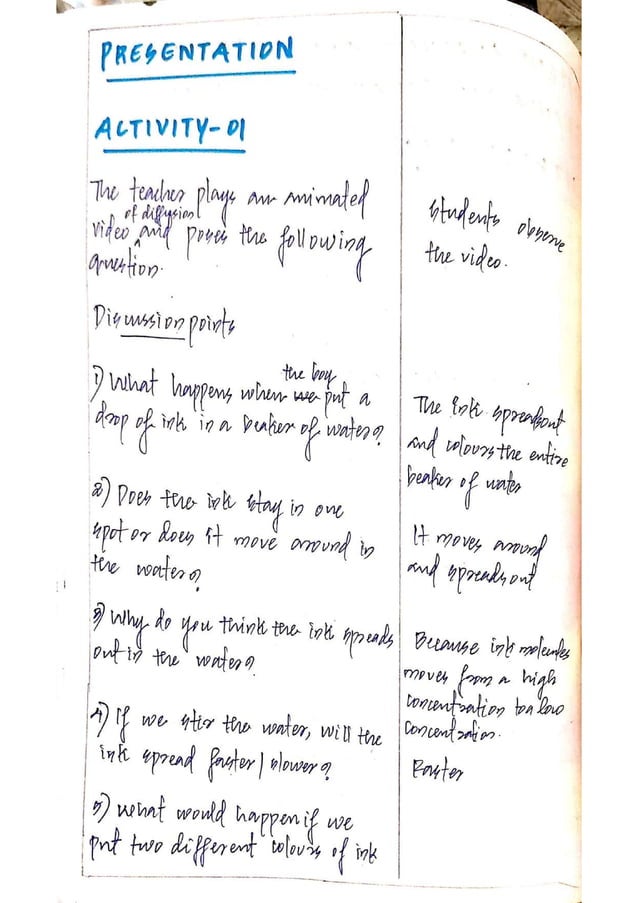 PRESENTATION
ACTIVITY-01
The teacher plays an animated
of diffusion
video and poses the following
question.
Students observe
the video.
Discussion points
the boy
1) What happens when we put a
drop of ink in a beaker of water?
The ink spreadsout
and colours the entire
beaker of water
2) Does the ink stay in one
spot or does it move around in
the water?
It moves around
and spreads out
3) Why do you think the ink spreads
out in the water?
Because ink molecules
moves from a high
concentration to a low
concentration.
4) If we stir the water, will the
ink spread faster/slower?
Faster
5) what would happen if we
put two different colours of ink